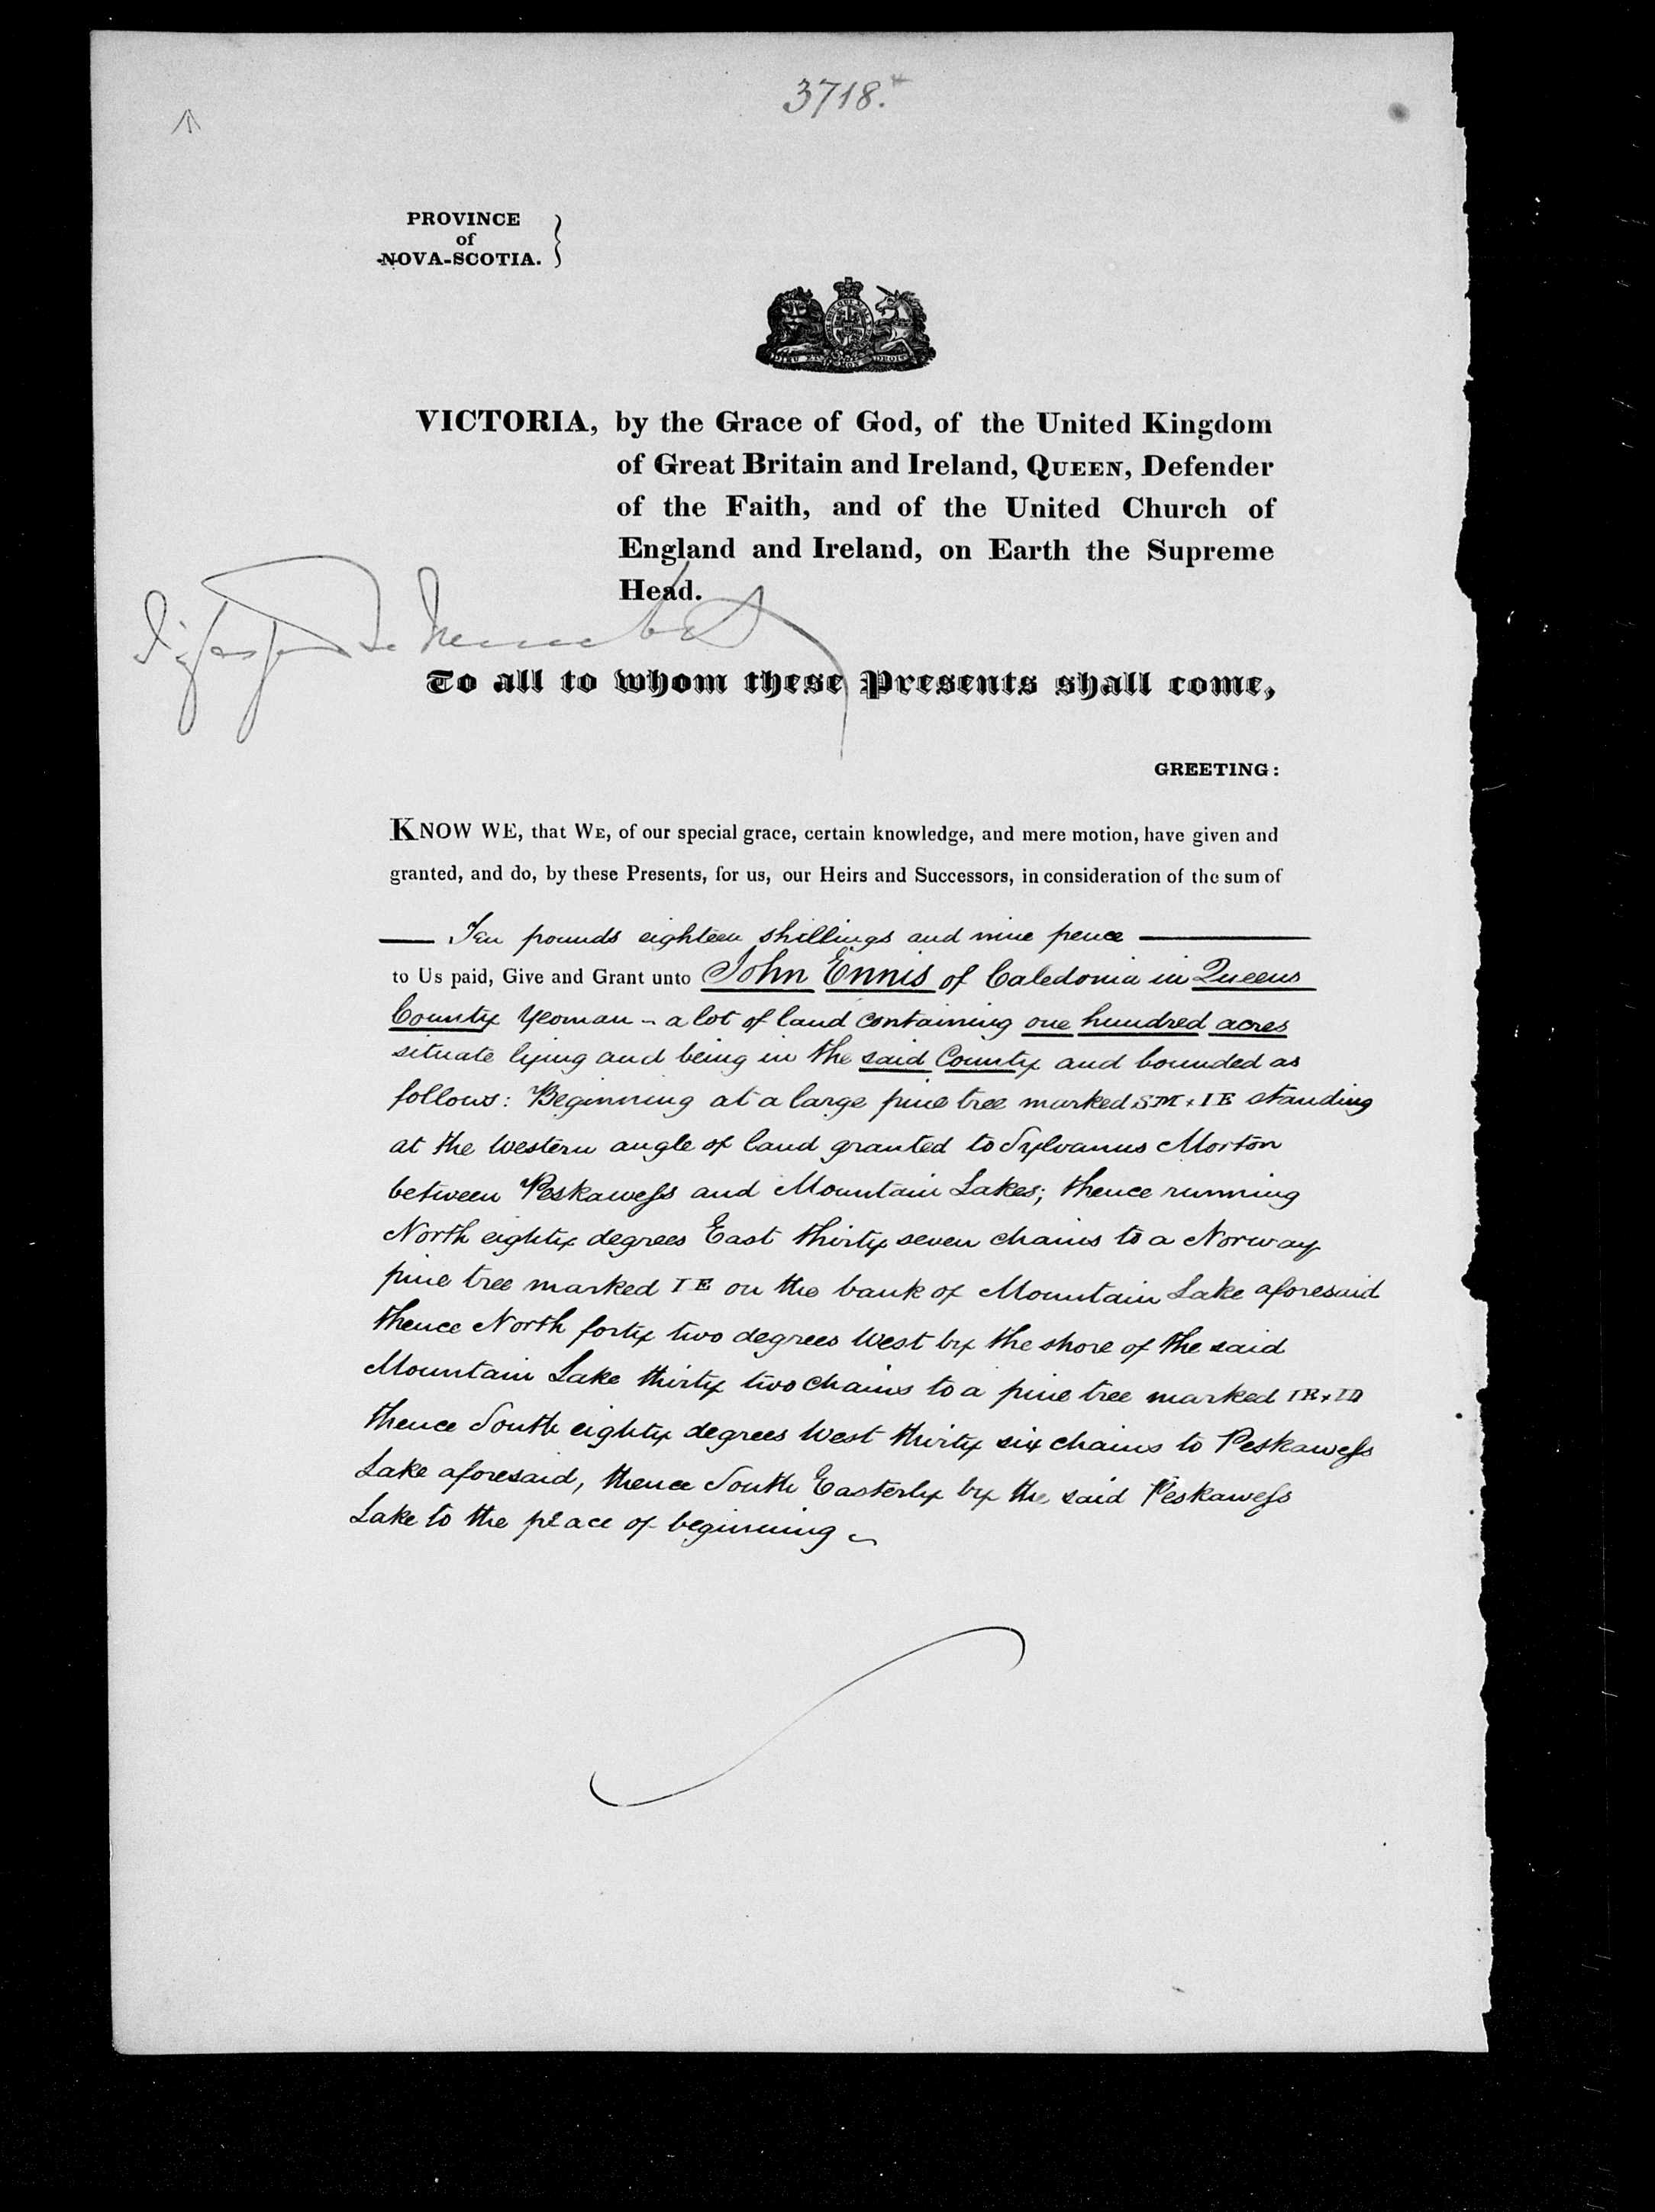 3718.
PROVINCE
of
NOVA-SCOTIA.
VICTORIA, by the Grace of God, of the United Kingdom
of Great Britain and Ireland, QUEEN, Defender
of the Faith, and of the United Church of
England and Ireland, on Earth the Supreme
Head.
To all to whom these Presents shall come,
GREETING:
KNOW WE, that WE, of our special grace, certain knowledge, and mere motion, have given and
granted, and do, by these Presents, for us, our Heirs and Successors, in consideration of the sum of
Ten pounds eighteen shillings and nine pence
to Us paid, Give and Grant unto John Ennis of Caledonia in Queens
County Yeoman - a lot of land containing one hundred acres
situate lying and being in the said County and bounded as
follows: Beginning at a large pine tree marked SM + IE standing
at the Western angle of land granted to Sylvanus Morton
between Peskawess and Mountain Lakes; thence running
North eighty degrees East thirty seven chains to a Norway
pine tree marked IE on the bank of Mountain Lake aforesaid
thence North forty two degrees West by the shore of the said
Mountain Lake thirty two chains to a pine tree marked
thence South eighty degrees West thirty six chains to Peskawess
Lake aforesaid, thence South Easterly by the said Peskawess
Lake to the place of beginning